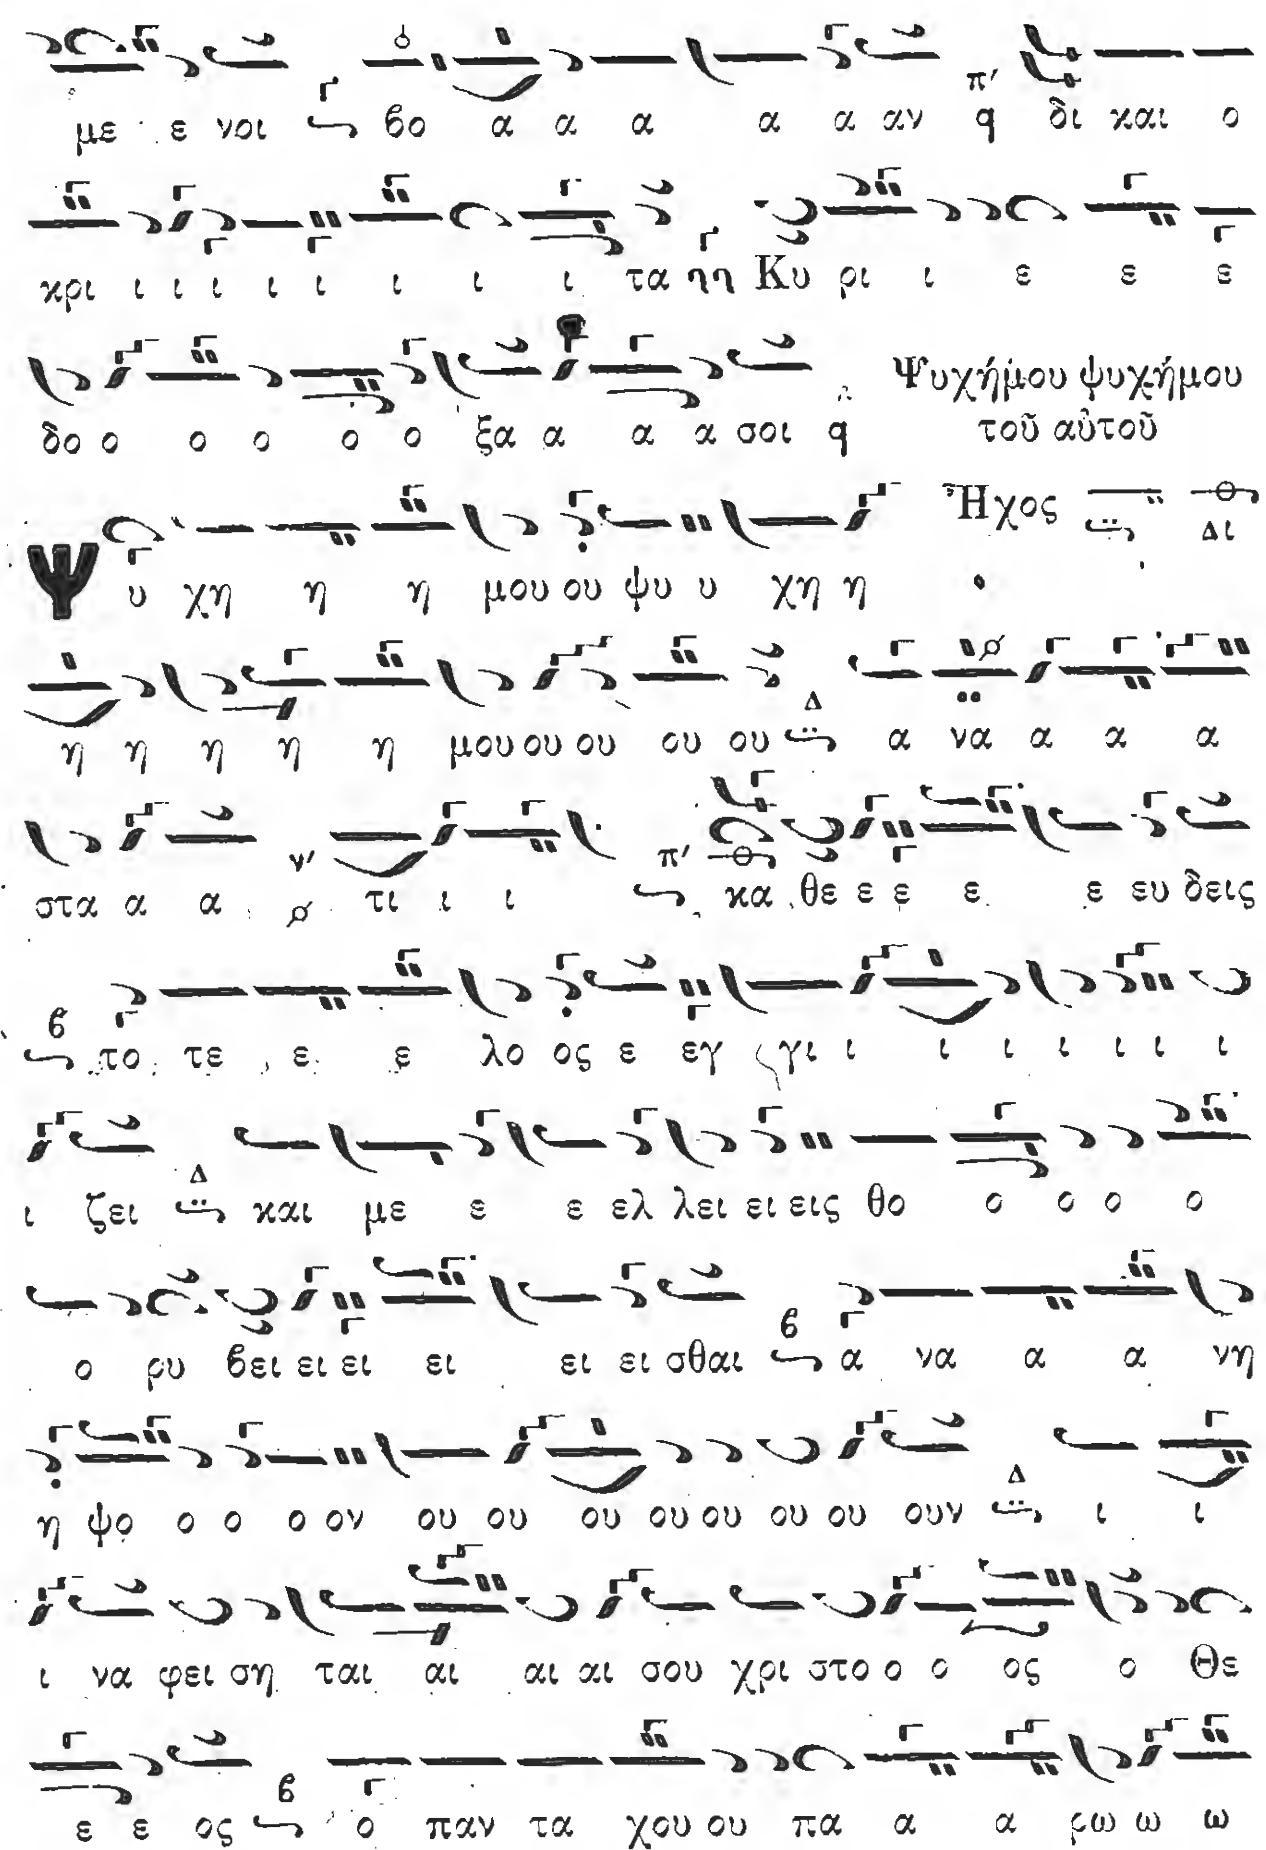 με ε νοι βο α α α α α αν π' q δι και ο
κρι ι ι ι ι ι ι ι ι τα ηη Κυ ρι ι ε ε ε
δο ο ο ο ο ο ξα α α α σοι q Ψυχήμου ψυχήμου
τοῦ αὐτοῦ
Ψ υ χη η η μου ου ψυ υ χη η Ἦχος Δι
η η η η η μου ου ου ου ου Δ α να α α α
στα α α ν' τι ι ι π' κα θε ε ε ε ε ευ δεις
β το τε ε ε λο ος ε εγ γι ι ι ι ι ι ι
ι ζει Δ και με ε ε ελ λει ει εις θο ο ο ο ο
ο ρυ βει ει ει ει ει ει σθαι β α να α α νη
η ψο ο ο ο ον ου ου ου ου ου ου ου ουν Δ ι ι
ι να φει ση ται αι αι αι σου χρι στο ο ο ος ο Θε
ε ε ος β ο παν τα χου ου πα α α ρω ω ω